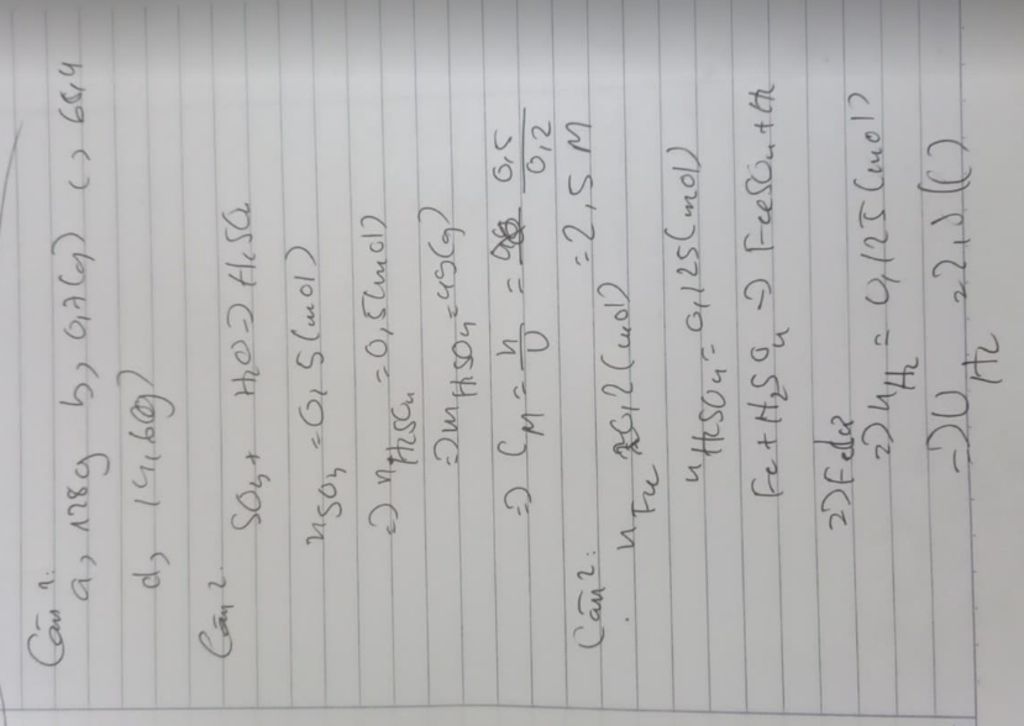 Câu 1:
a, 128g b, 0,7(g) c, 66,4
d, 14,6(g)
Câu 2.
SO4 + H2O => H2SO4
nSO4 = 0,5(mol)
=> nH2SO4 = 0,5(mol)
=> mH2SO4 = 49(g)
=> CM = n/V = 0,5/0,2
= 2,5M
Câu 2:
nFe = 0,2(mol)
nH2SO4 = 0,125(mol)
Fe + H2SO4 => FeSO4 + H2
=> Fe dư
=> nH2 = 0,125(mol)
=> VH2 = 2,8(l)